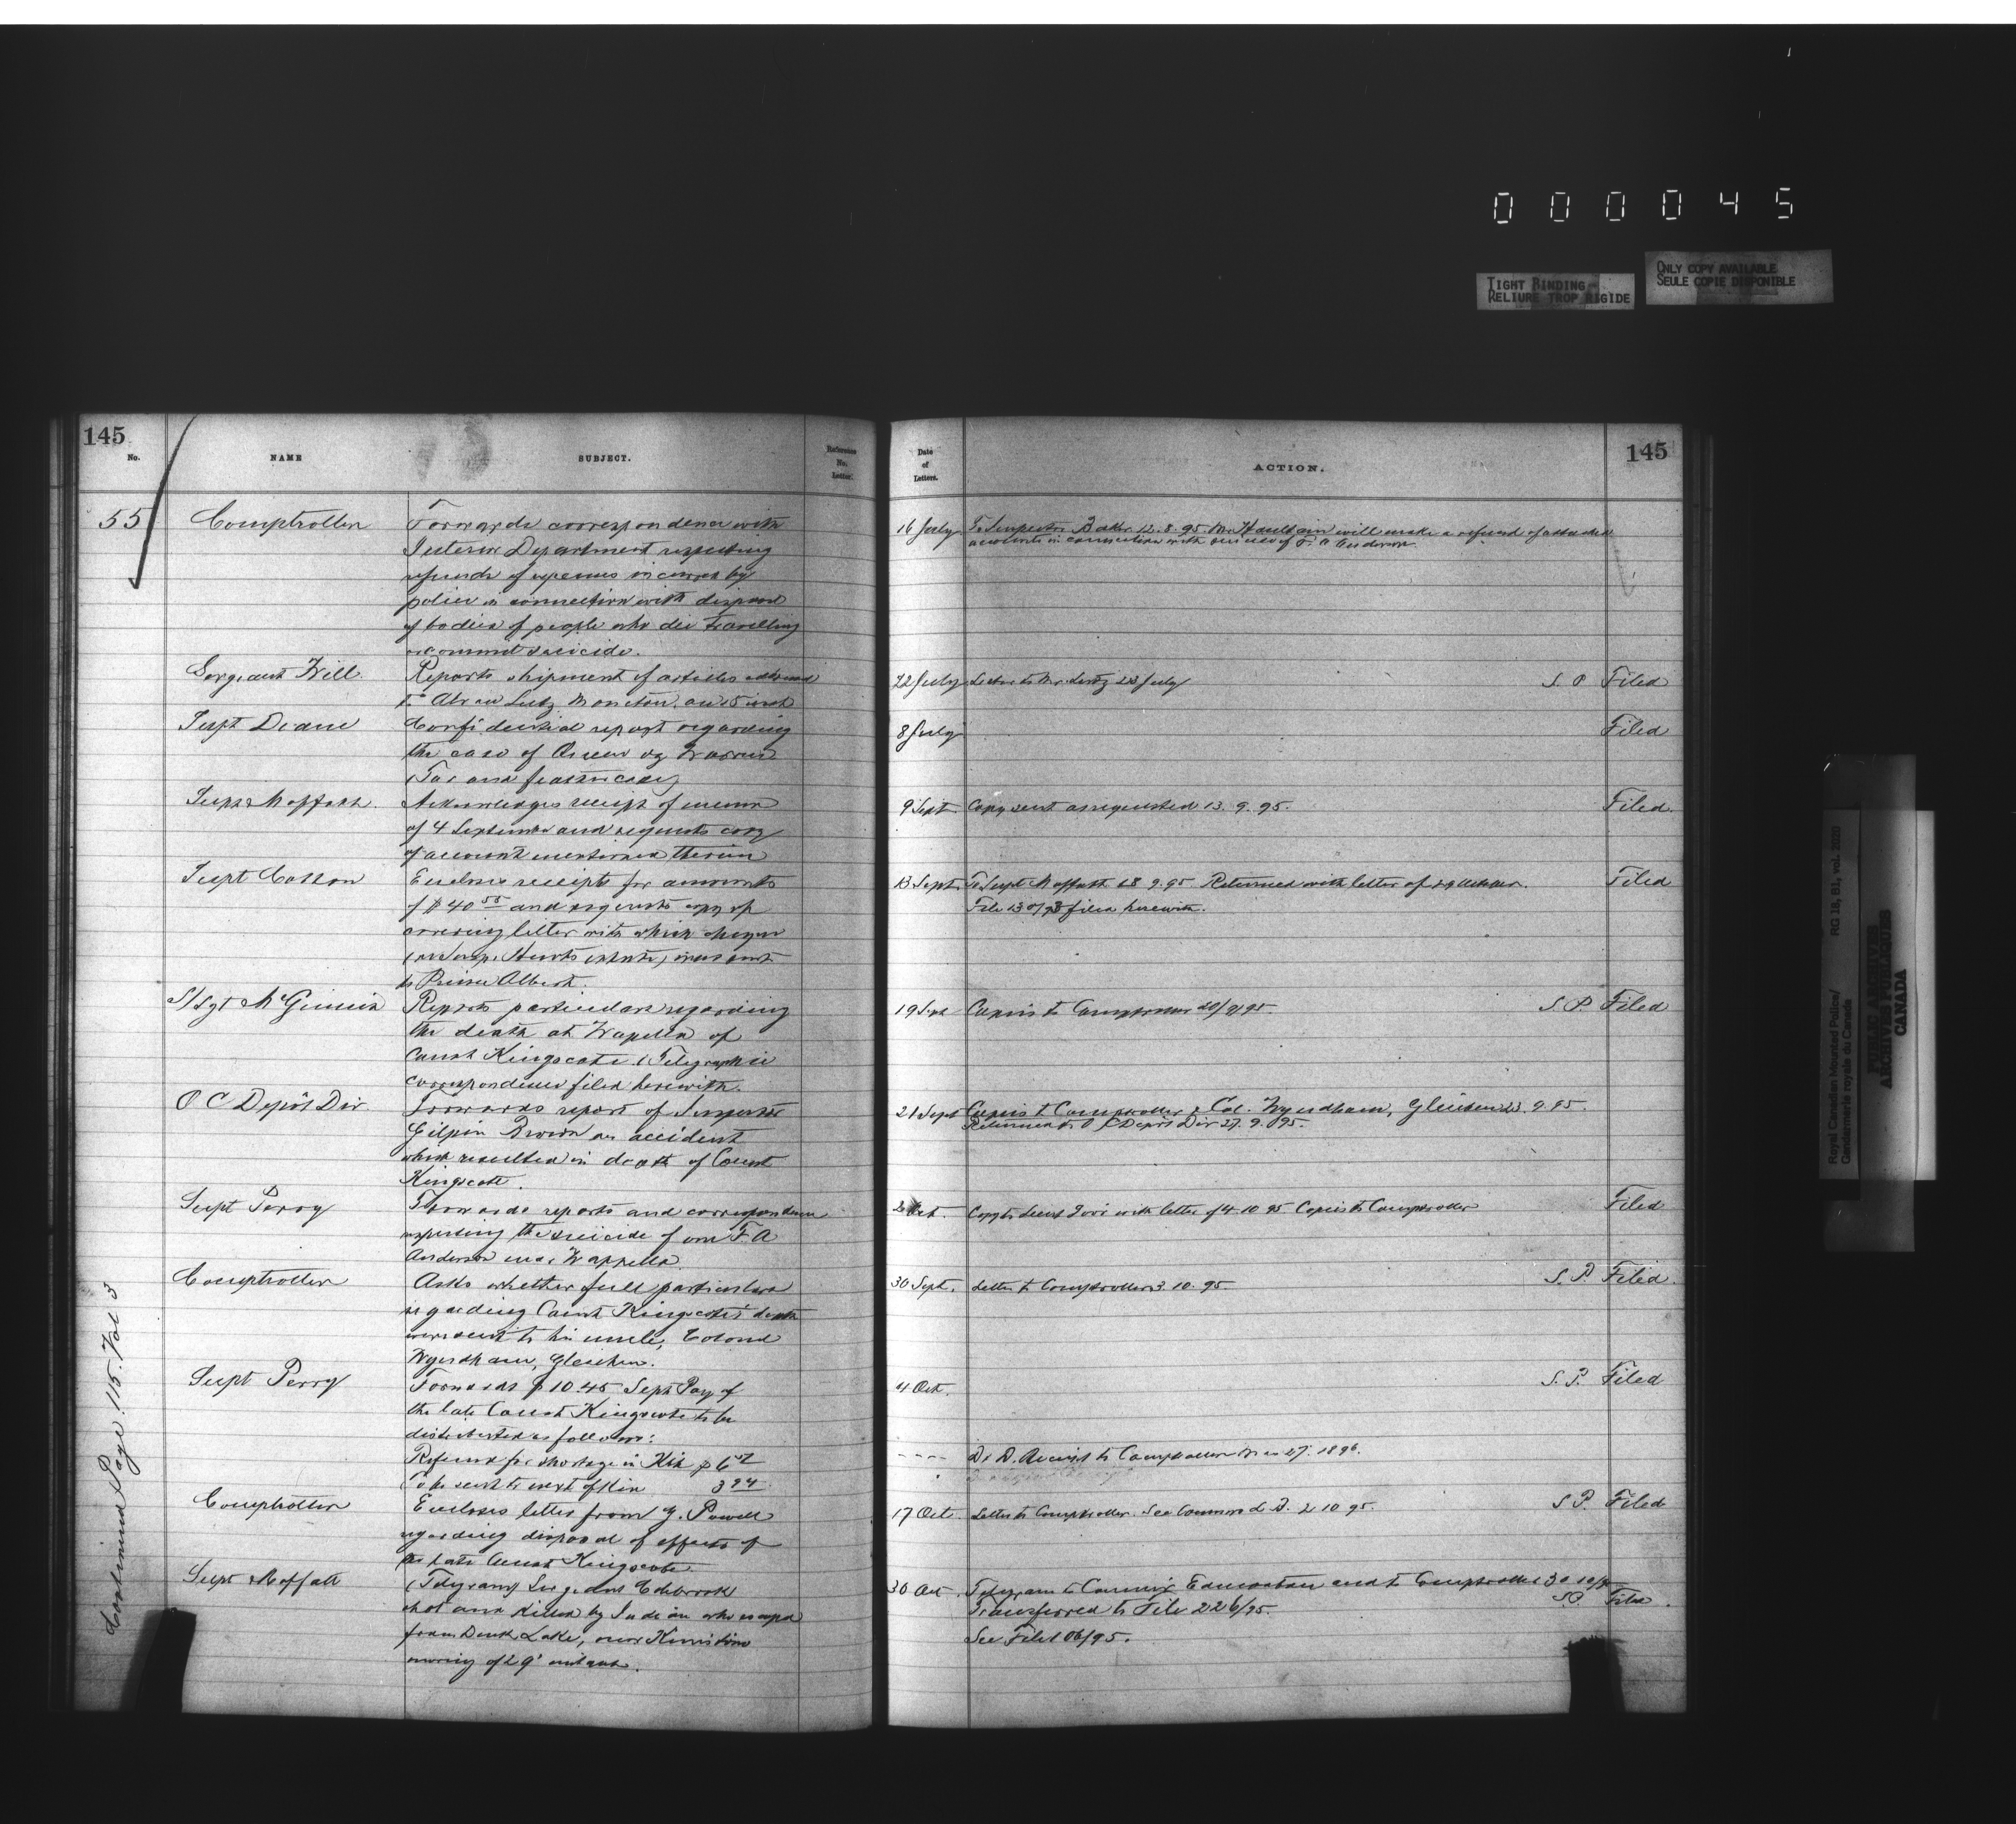 000045
TIGHT BINDING
RELIURE TROP RIGIDE
ONLY COPY AVAILABLE
SEULE COPIE DISPONIBLE
145
No.
NAME
SUBJECT.
Reference No. Letter.
55
Comptroller
Forwards correspondence with
Interior Department respecting
refunds of expenses incurred by
police in connection with disposal
of bodies of people who die travelling
or commit suicide.
Sergeant Will
Reports shipment of articles
Lutz Moncton, on 15 inst
Supt Deane
Confidential report regarding
the case of Queen vs Warren
(Tar and feather case)
Supt Moffatt
Acknowledges receipt of memo
of 4 September and requests copy
of account mentioned therein
Supt Cotton
Encloses receipts for amounts
of $40 55 and requests copy of
covering letter with which cheque
was sent
to Prince Albert.
S/Sgt McGinnis
Reports particulars regarding
the death at Wapella of
Const Kingscote. (Telegraphic
correspondence filed herewith.
O C Depôt Div
Forwards report of Inspector
Gilpin Brown on accident
which resulted in death of Const
Kingscote.
Supt Perry
Forwards reports and correspondence
respecting the suicide of one F. A
Anderson near Wappella
Comptroller
Asks whether full particulars
regarding Const Kingscote's death
were sent to his uncle, Colonel
Wyndham, Gleichen.
Supt Perry
Forwards $10.45 Sept Pay of
the late Const Kingscote to be
distributed as follows:
Refund for shortage in Kit $6 51
To be sent to next of Kin 3 94
Comptroller
Encloses letter from G. Powell
regarding disposal of effects of
the late Const Kingscote
Supt Moffatt
(Telegram) Sergeant Colebrook
shot and killed by Indian who escaped
from Duck Lake, near Kinistino
morning of 29' instant.
Continued Page 115. Vol 3
Date of Letters.
ACTION.
145
16 July
To Inspector Baker 12.8.95. Mr Haultain will make a refund of attached
accounts in connection with suicide of F. A Anderson.
22 July Letter to Mr. Lutz 23 July S. P. Filed
8 July Filed
9 Sept Copy sent as requested 13. 9. 95. Filed.
13 Sept. To Supt Moffatt 18 9.95 Returned with letter of Filed
filed herewith.
19 Sept Copies to Comptroller 20/9/95. S. P. Filed
21 Sept Copies to Comptroller & Col. Wyndham, Gleichen 23. 9. 95.
Returned to O C Depôt Div 27. 9. 95.
2 Oct. with letter of 4 10 95 Copies to Comptroller Filed
30 Sept. Letter to Comptroller 3. 10. 95. S. P. Filed.
4 Oct. S. P. Filed
---- D. D. Receipt to Comptroller Mar 27. 1896.
17 Oct Letter to Comptroller. See 2 10 95. S P. Filed
30 Oct. Telegram to Commr Edmonton and to Comptroller 30 10/95
Transferred to File 226/95. S.P. Filed.
See File 106/95.
Royal Canadian Mounted Police/
Gendarmerie royale du Canada
RG 18, B1, vol. 2020
PUBLIC ARCHIVES
ARCHIVES PUBLIQUES
CANADA